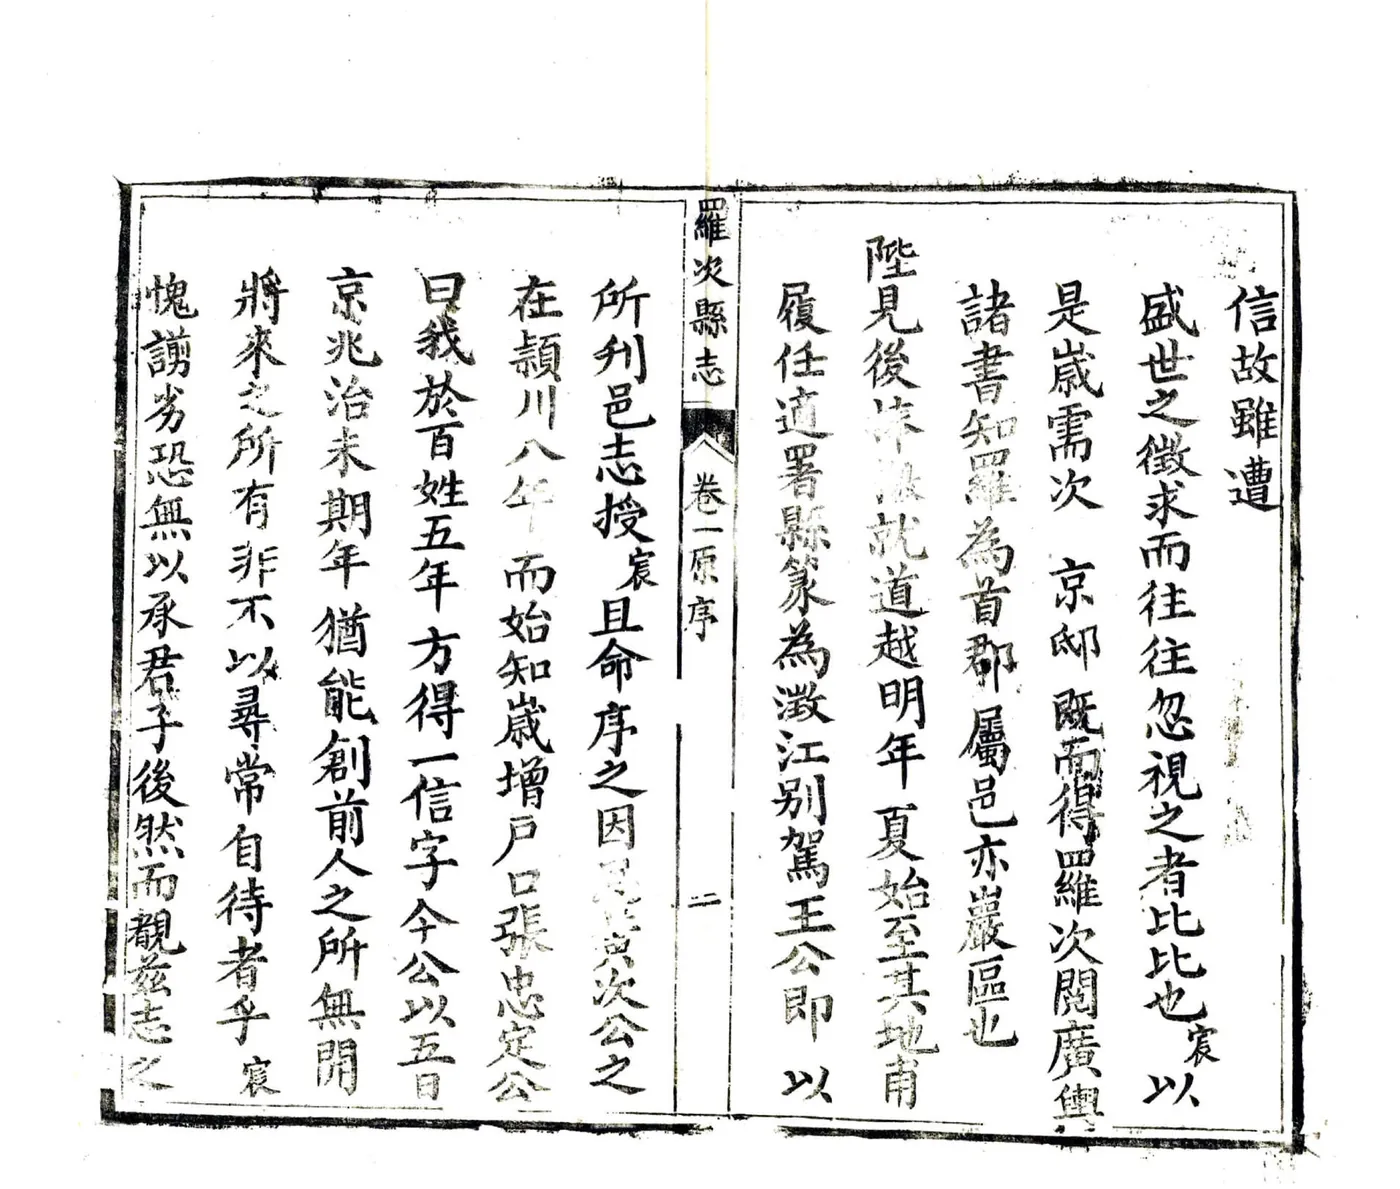 信故雖遭
盛世之徵求而往往忽視之者比比也宸以
是歲需次　京邸既而得羅次閱廣輿
諸書知羅為首郡屬邑亦巖區也
陛見後就道越明年夏始至其地甫
履任適署縣篆為澂江别駕王公即　以
羅次縣志
卷一原序
二
所刋邑志授宸且命序之因次公之
在潁川八年而始知歲增戸口張忠定公
曰我於百姓五年方得一信字今公以五日
京兆治未期年猶能創前人之所無開
將來之所有非不以尋常自待者乎宸
愧謭劣恐無以承君子後然而覩兹志之